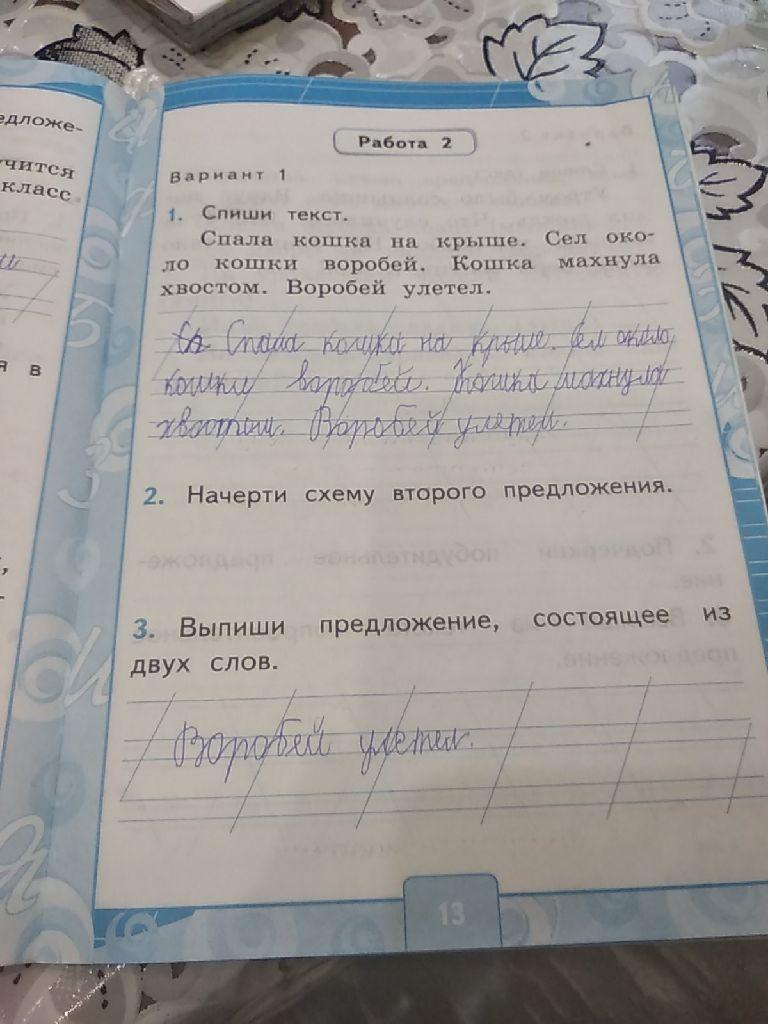 едложе-
чится
класс.
я в
Работа 2
Вариант 1
1. Спиши текст.
Спала кошка на крыше. Сел око-
ло кошки воробей. Кошка махнула
хвостом. Воробей улетел.
Спала кошка на крыше. Сел около
кошки воробей. Кошка махнула
хвостом. Воробей улетел.
2. Начерти схему второго предложения.
3. Выпиши предложение, состоящее из
двух слов.
Воробей улетел.
13